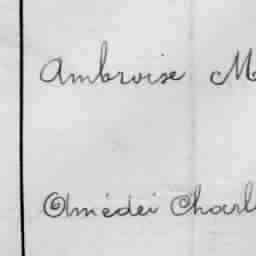 Ambroise M
Amédéi Charl